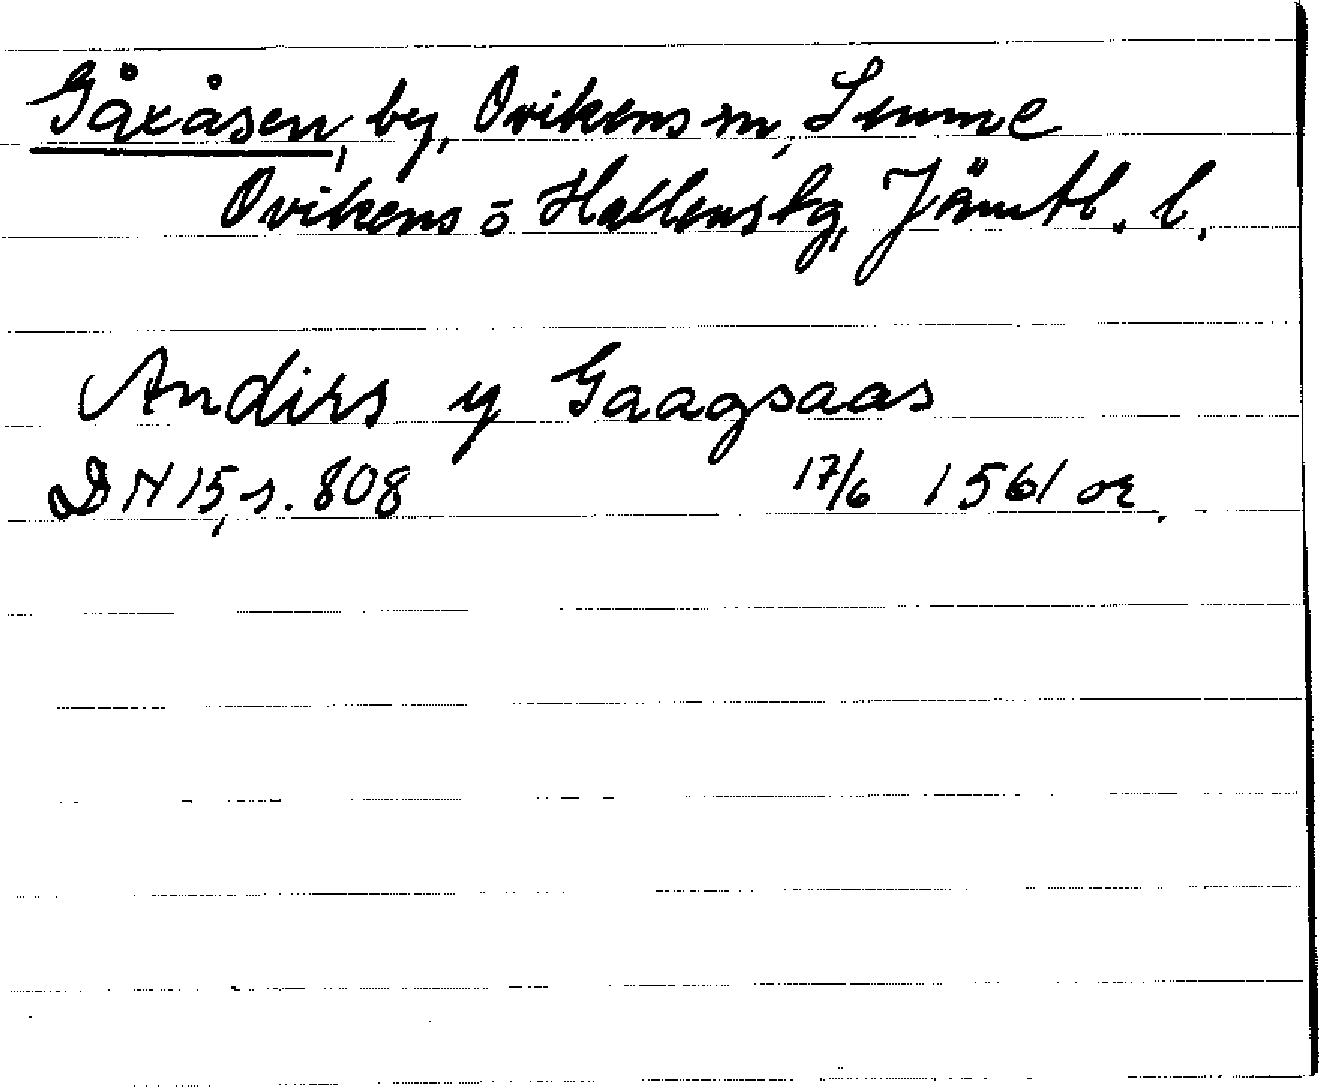 Gåxåsen, by, Ovikens sn, Sunne
Ovikens o Hallens tg, Jämtl. l.
Andirs y Gaagsaas
DN 15, s. 808 17/6 1561 or.